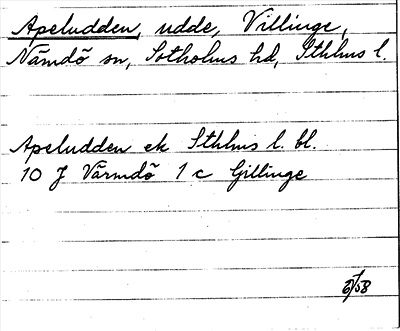 Apeludden, udde, Villinge,
Nämdö sn, Sotholms hd, Sthlms l.
Apeludden ek Sthlms l. bl.
10 J Värmdö 1 c Gillinge